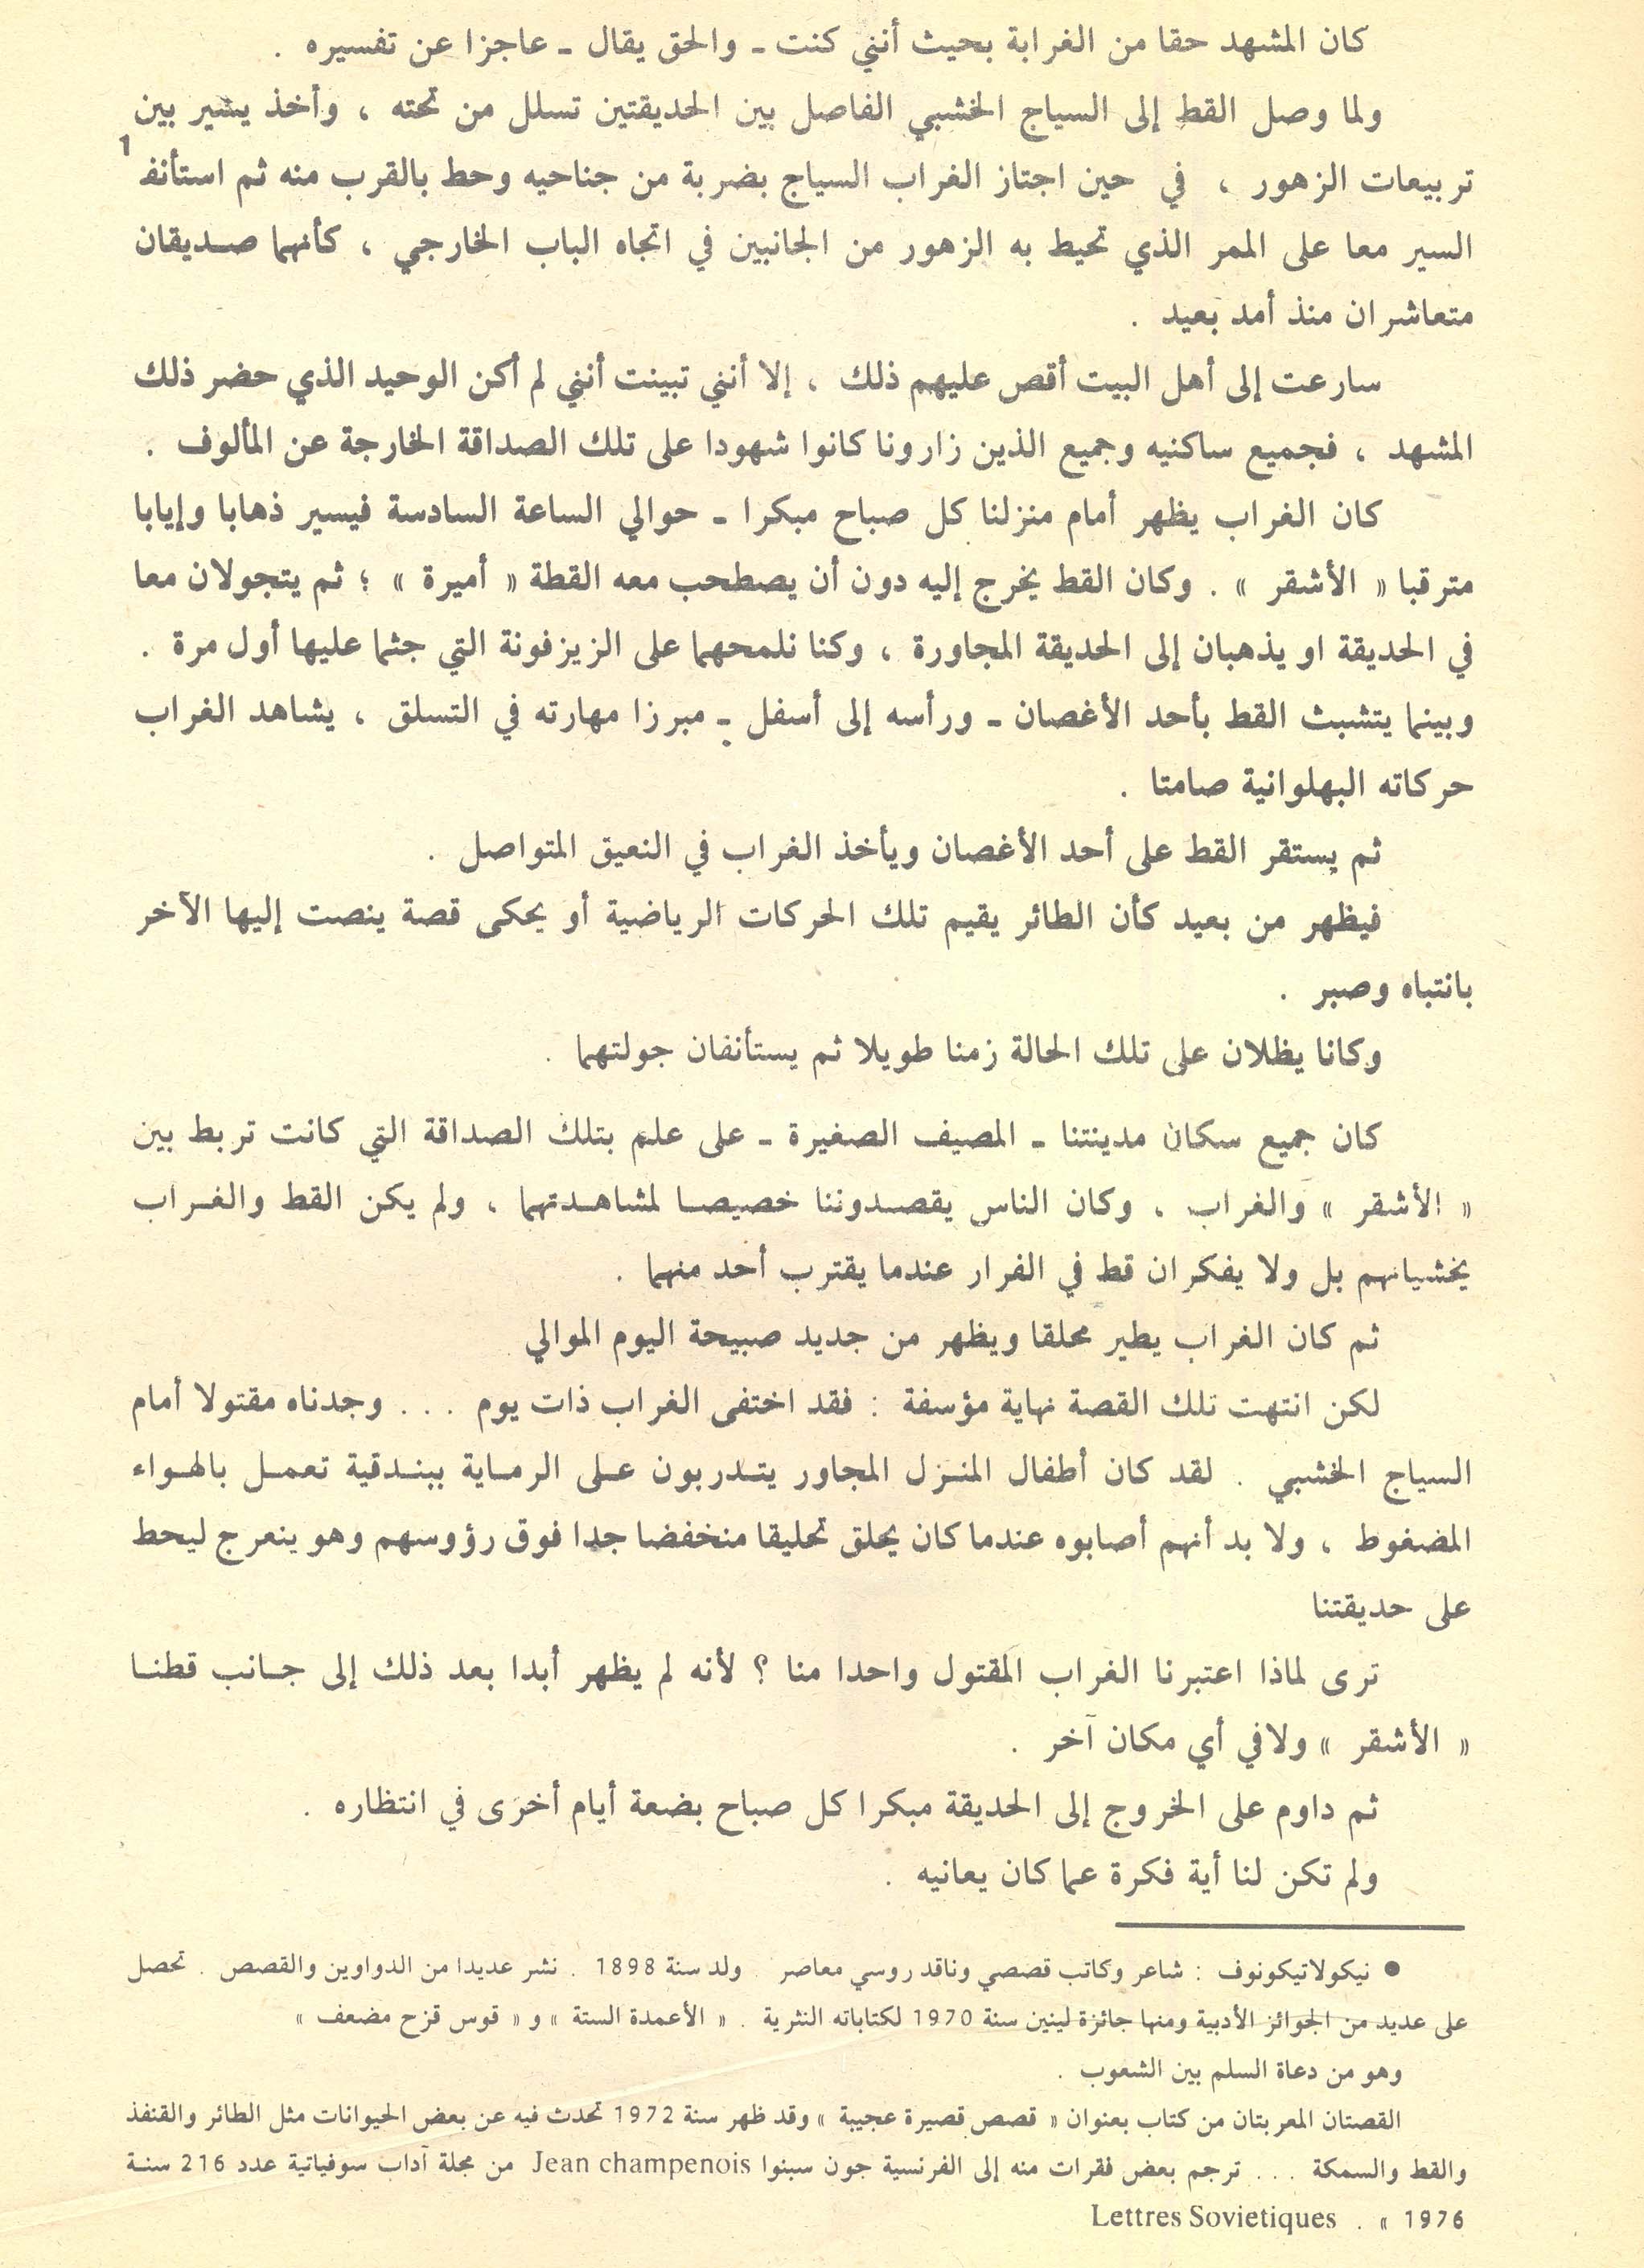 كان المشهد حقا من الغرابة بحيث أنني كنت ـ والحق يقال ـ عاجزا عن تفسيره .
ولما وصل القط إلى السياج الخشبي الفاصل بين الحديقتين تسلل من تحته ، وأخذ يسير بين
تربيعات الزهور ، في حين اجتاز الغراب السياج بضربة من جناحيه وحط بالقرب منه ثم استأنفا
السير معا على الممر الذي تحيط به الزهور من الجانبين في اتجاه الباب الخارجي ، كأنهما صديقان
متعاشران منذ أمد بعيد .
سارعت إلى أهل البيت أقص عليهم ذلك ، إلا أنني تبينت أنني لم أكن الوحيد الذي حضر ذلك
المشهد ، فجميع ساكنيه وجميع الذين زارونا كانوا شهودا على تلك الصداقة الخارجة عن المألوف .
كان الغراب يظهر أمام منزلنا كل صباح مبكرا ـ حوالي الساعة السادسة فيسير ذهابا وإيابا
مترقبا « الأشقر » . وكان القط يخرج إليه دون أن يصطحب معه القطة « أميرة » ؛ ثم يتجولان معا
في الحديقة او يذهبان إلى الحديقة المجاورة ، وكنا نلمحهما على الزيزفونة التي جثما عليها أول مرة .
وبينما يتشبث القط بأحد الأغصان ـ ورأسه إلى أسفل ـ مبرزا مهارته في التسلق ، يشاهد الغراب
حركاته البهلوانية صامتا .
ثم يستقر القط على أحد الأغصان ويأخذ الغراب في النعيق المتواصل .
فيظهر من بعيد كأن الطائر يقيم تلك الحركات الرياضية أو يحكى قصة ينصت إليها الآخر
بانتباه وصبر .
وكانا يظلان على تلك الحالة زمنا طويلا ثم يستأنفان جولتهما .
كان جميع سكان مدينتنا ـ المصيف الصغيرة ـ على علم بتلك الصداقة التي كانت تربط بين
« الأشقر » والغراب . وكان الناس يقصدوننا خصيصا لمشاهدتهما ، ولم يكن القط والغراب
يخشيانهم بل ولا يفكران قط في الفرار عندما يقترب أحد منهما .
ثم كان الغراب يطير محلقا ويظهر من جديد صبيحة اليوم الموالي
لكن انتهت تلك القصة نهاية مؤسفة : فقد اختفى الغراب ذات يوم . . . وجدناه مقتولا أمام
السياج الخشبي . لقد كان أطفال المنزل المجاور يتدربون على الرماية ببندقية تعمل بالهواء
المضغوط ، ولا بد أنهم أصابوه عندما كان يحلق تحليقا منخفضا جدا فوق رؤوسهم وهو ينعرج ليحط
على حديقتنا
ترى لماذا اعتبرنا الغراب المقتول واحدا منا ؟ لأنه لم يظهر أبدا بعد ذلك إلى جانب قطنا
« الأشقر » ولافي أي مكان آخر .
ثم داوم على الخروج إلى الحديقة مبكرا كل صباح بضعة أيام أخرى في انتظاره .
ولم تكن لنا أية فكرة عما كان يعانيه .
● نيكولاتيكونوف : شاعر وكاتب قصصي وناقد روسي معاصر . ولد سنة 1898 . نشر عديدا من الدواوين والقصص . تحصل
على عديد من الجوائز الأدبية ومنها جائزة لينين سنة 1970 لكتاباته النثرية . « الأعمدة الستة » و « قوس قزح مضعف »
وهو من دعاة السلم بين الشعوب .
القصتان المعربتان من كتاب بعنوان « قصص قصيرة عجيبة » وقد ظهر سنة 1972 تحدث فيه عن بعض الحيوانات مثل الطائر والقنفذ
والقط والسمكة . . . ترجم بعض فقرات منه إلى الفرنسية جون سبنوا Jean champenois من مجلة آداب سوفياتية عدد 216 سنة
1976 » . Lettres Sovietiques